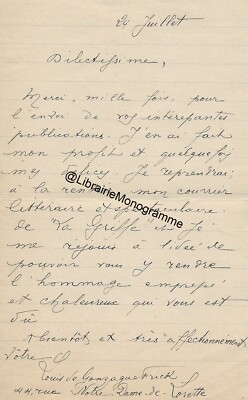 24 Juillet
Dilectissime,
Merci, mille fois, pour
l'envoi de vos intéressantes
publications. J'en ai fait
mon profit et quelquefois
m'y délecy. Je reprendrai
à la rentrée mon courrier
littéraire et spectaculaire
de "La Griffe" et je
me réjouis à l'idée de
pouvoir vous y rendre
l'hommage empressé
et chaleureux qui vous est
dû
A bientôt et très affectionnément
vôtre
Louis de Gonzague Frick
44, rue Notre-Dame-de-Lorette
@LibrairieMonogramme